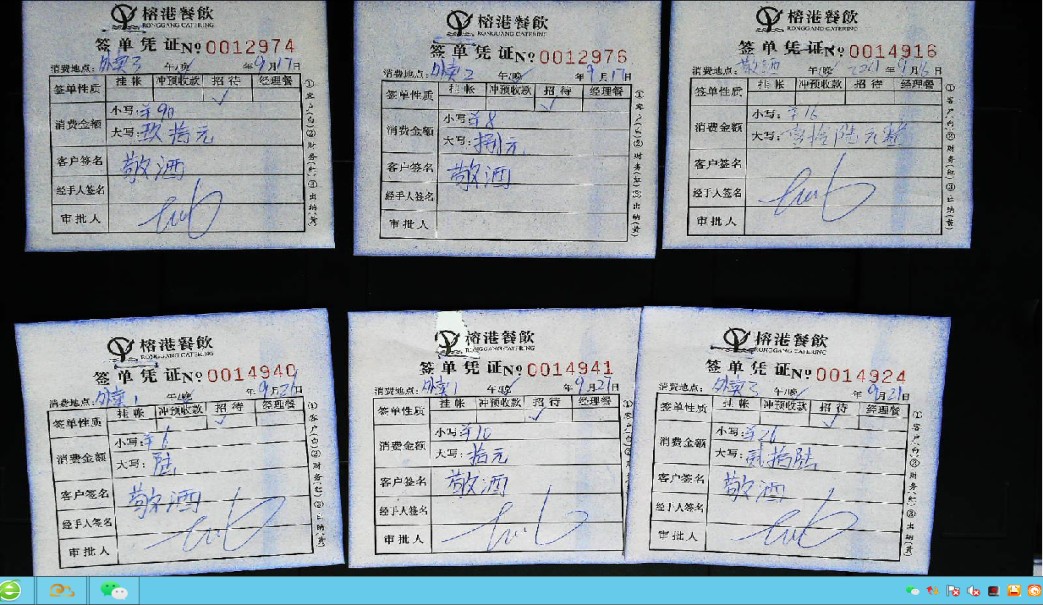 榕港餐飲
RONGGANG CATERING
签单凭证 No 0012974
消费地点: 外卖3 午/晚 年9月17日
签单性质 挂帐 冲预收款 招待 经理餐
消费金额
小写: 羊90
大写: 玖拾元
客户签名 敬酒
经手人签名
审批人
榕港餐飲
RONGGANG CATERING
签单凭证 No 0012976
消费地点: 外卖2 午/晚 年9月17日
签单性质 挂帐 冲预收款 招待 经理餐
消费金额
小写: 羊8
大写: 捌元
客户签名 敬酒
经手人签名
审批人
榕港餐飲
RONGGANG CATERING
签单凭证 No 0014916
消费地点: 敬酒 午/晚 2021年9月16日
签单性质 挂帐 冲预收款 招待 经理餐
消费金额
小写: 羊16
大写: 壹拾陆元整
客户签名
经手人签名
审批人
榕港餐飲
RONGGANG CATERING
签单凭证 No 0014940
消费地点: 外卖1 午/晚 年9月26日
签单性质 挂帐 冲预收款 招待 经理餐
消费金额
小写: 羊6
大写: 陆
客户签名 敬酒
经手人签名
审批人
榕港餐飲
RONGGANG CATERING
签单凭证 No 0014941
消费地点: 外卖1 午/晚 年9月27日
签单性质 挂帐 冲预收款 招待 经理餐
消费金额
小写: 羊10
大写: 拾元
客户签名 敬酒
经手人签名
审批人
榕港餐飲
RONGGANG CATERING
签单凭证 No 0014924
消费地点: 外卖3 午/晚 年9月21日
签单性质 挂帐 冲预收款 招待 经理餐
消费金额
小写: 羊26
大写: 贰拾陆
客户签名 敬酒
经手人签名
审批人